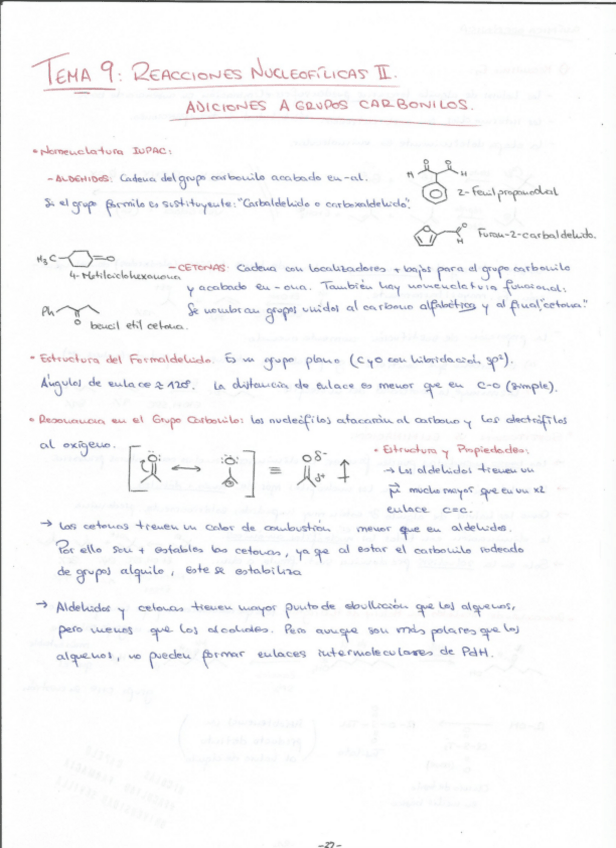 TEMA 9: REACCIONES NUCLEOFÍLICAS II.
ADICIONES A GRUPOS CARBONILOS.
• Nomenclatura IUPAC:
- ALDEHIDOS: Cadena del grupo carbonilo acabado en -al.
Si el grupo formilo es sustituyente: "Carbaldehido o carboxaldehido".
O O
H H
2-Fenilpropanodial
O
O
H
Furan-2-carbaldehido.
H3C O
4-Metilciclohexanona
- CETONAS: Cadena con localizadores + bajos para el grupo carbonilo
y acabado en -ona. También hay nomenclatura funcional:
Se nombran grupos unidos al carbono alfabética y al final, "cetona."
Ph
O
bencil etil cetona.
• Estructura del Formaldehido. Es un grupo plano (C y O con hibridación sp²).
Ángulos de enlace ≈ 120º. La distancia de enlace es menor que en C-O (simple).
• Resonancia en el Grupo Carbonilo: los nucleófilos atacarán al carbono y los electrófilos
al oxígeno.
:O: ↔ :O: ≡ O δ-
⊕
δ+
• Estructura y Propiedades:
→ Los aldehidos tienen un
μ mucho mayor que en un
enlace C=C.
→ Las cetonas tienen un calor de combustión menor que en aldehidos.
Por ello son + estables las cetonas, ya que al estar el carbonilo rodeado
de grupos alquilo, este se estabiliza
→ Aldehidos y cetonas tienen mayor punto de ebullición que los alquenos,
pero menos que los alcoholes. Pero aunque son más polares que los
alquenos, no pueden formar enlaces intermoleculares de PdH.
-27-